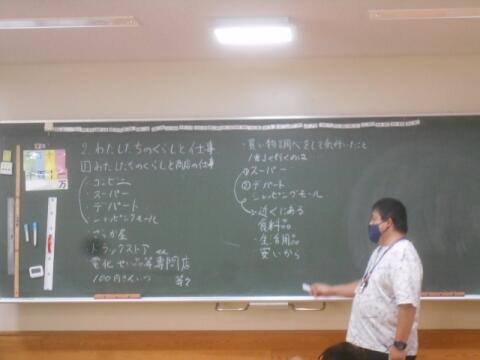 2.わたしたちのくらしと仕事
1 わたしたちのくらしと商店の仕事
・コンビニ
・スーパー
・デパート
・ショッピングモール
・やおや屋
・ドラッグストア
電化せい品等専門店
100円きんいつ 等々
・買い物調べをして気付いたこと
1番よく行くのは
①スーパー
②デパート
ショッピングモール
・近くにある
・食料品
・生活用品
安いから
万